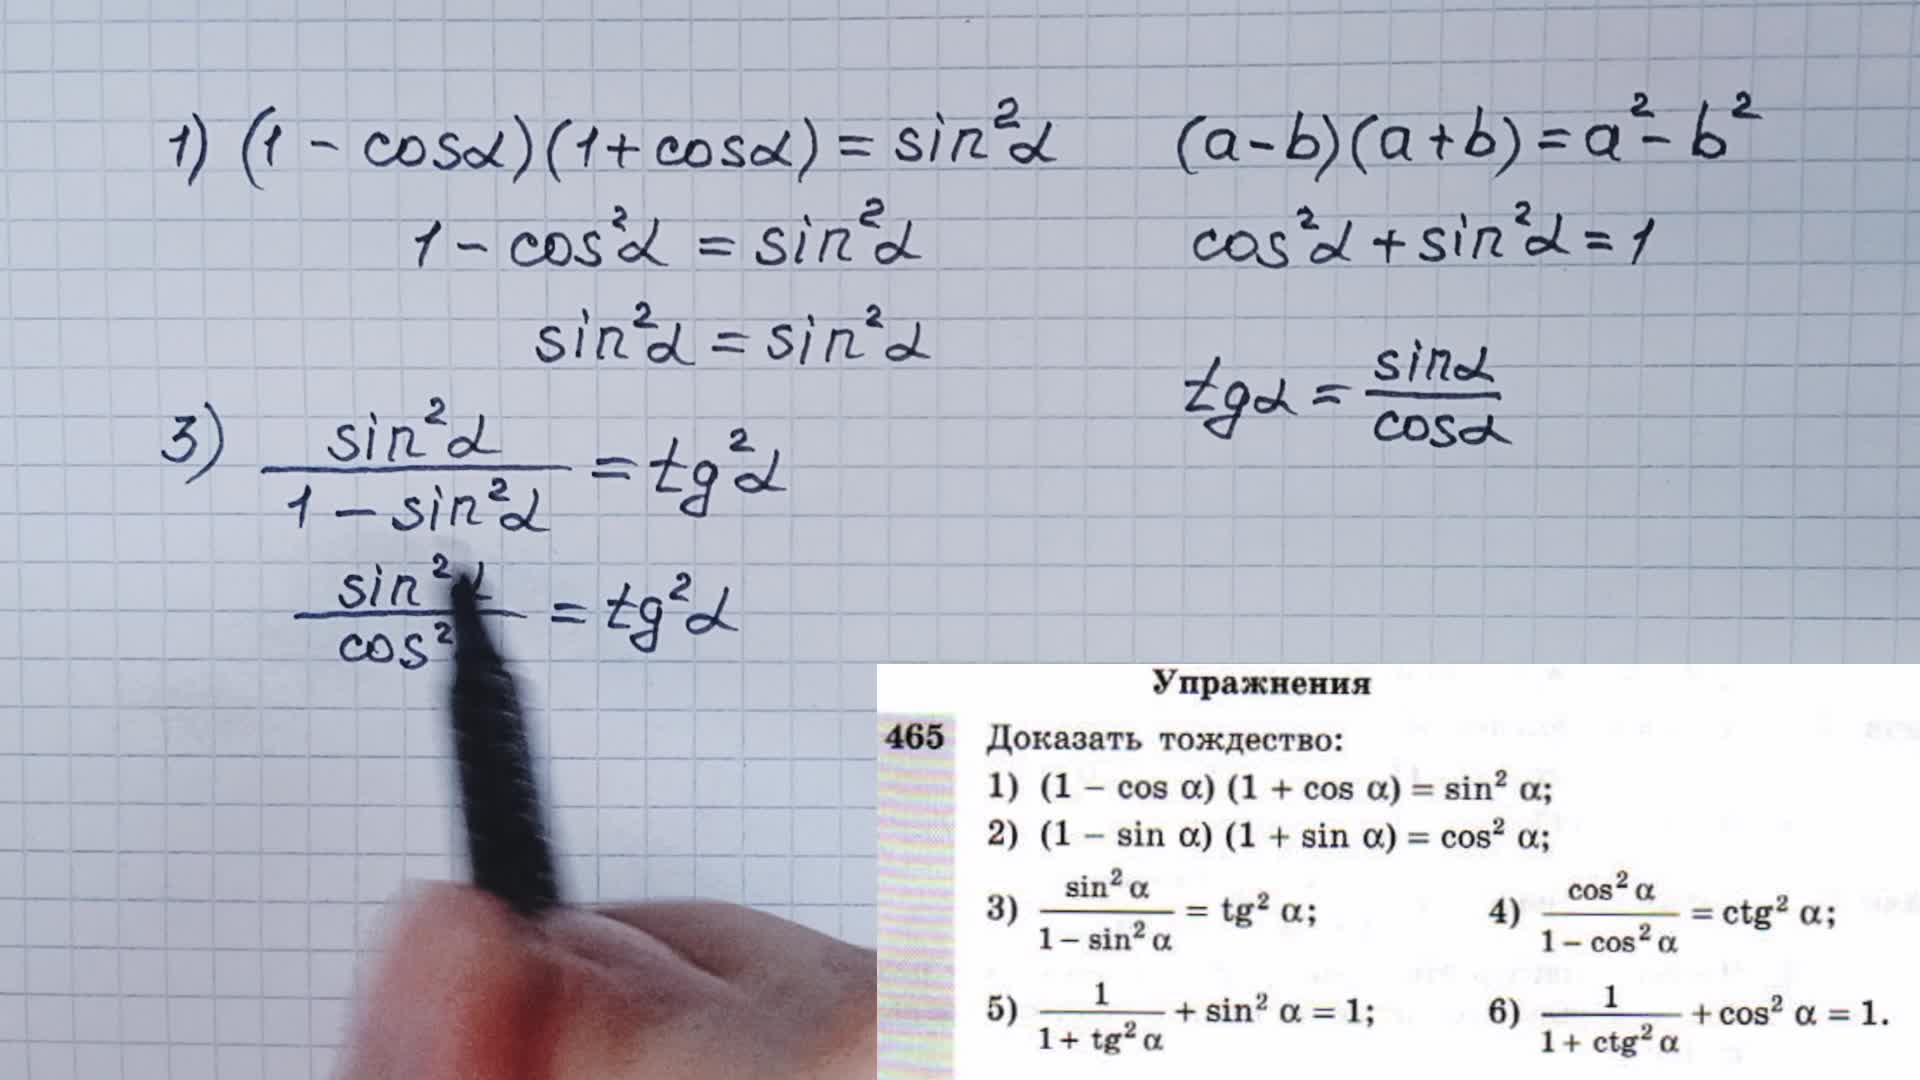 1) (1 - cosα)(1 + cosα) = sin²α
1 - cos²α = sin²α
sin²α = sin²α
3) sin²α / (1 - sin²α) = tg²α
sin²α / cos² = tg²α
(a - b)(a + b) = a² - b²
cos²α + sin²α = 1
tgα = sinα / cosα
Упражнения
465 Доказать тождество:
1) (1 – cos α) (1 + cos α) = sin² α;
2) (1 – sin α) (1 + sin α) = cos² α;
3) sin² α / (1 – sin² α) = tg² α; 4) cos² α / (1 – cos² α) = ctg² α;
5) 1 / (1 + tg² α) + sin² α = 1; 6) 1 / (1 + ctg² α) + cos² α = 1.